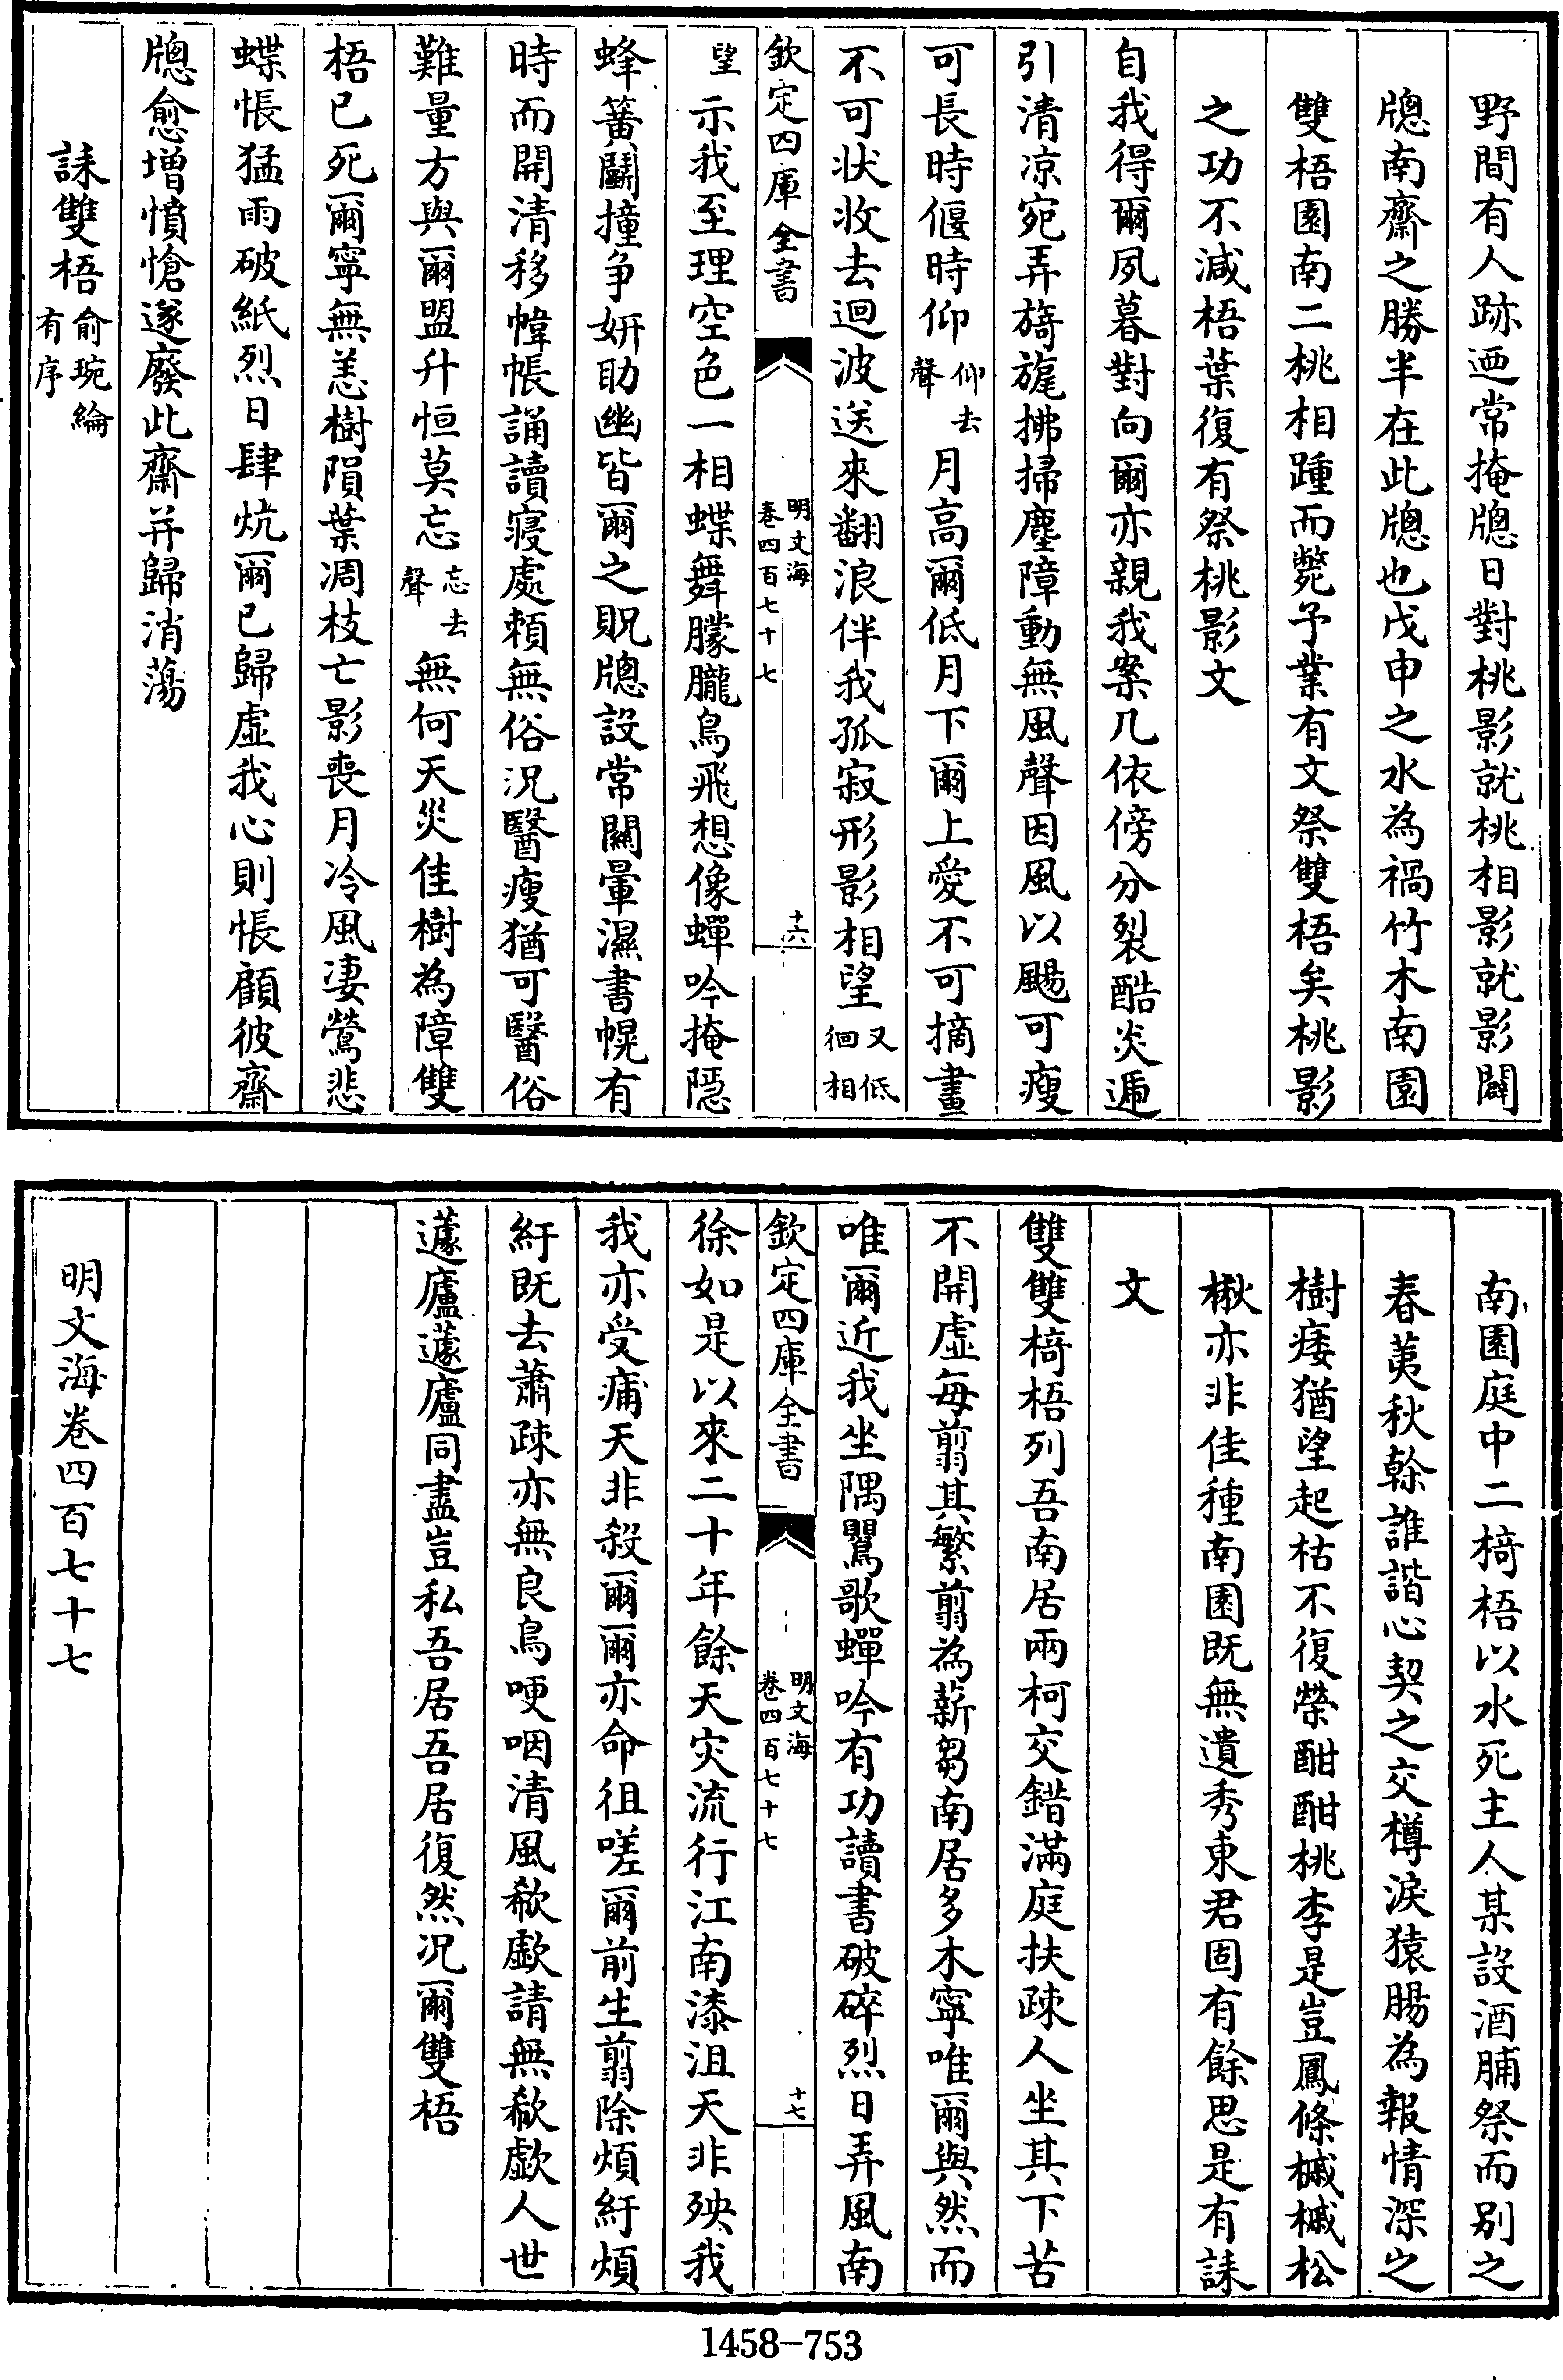 野間有人跡迺常掩牕日對桃影就桃相影就影闢
牕南齋之勝半在此牕也戊申之水為禍竹木南園
雙梧園南二桃相踵而斃予業有文祭雙梧矣桃影
之功不減梧葉復有祭桃影文
自我得爾夙暮對向爾亦親我案几依傍分裂酷炎逓
引清凉宛弄旖旎拂掃塵障動無風聲因風以颺可瘦
可長時偃時仰仰去聲月高爾低月下爾上愛不可摘畫
不可状收去迴波送來翻浪伴我孤寂形影相望又低徊相
欽定四庫全書
明文海
卷四百七十七
十六
望示我至理空色一相蝶舞朦朧鳥飛想像蟬吟掩隱
蜂簧鬭撞争妍助幽皆爾之貺牕設常闢暈濕書幌有
時而開清移幃帳誦讀寢處頼無俗况醫瘦猶可醫俗
難量方與爾盟升恒莫忘忘去聲無何天災佳樹為障雙
梧已死爾寧無恙樹隕葉凋枝亡影喪月冷風淒鶯悲
蝶悵猛雨破紙烈日肆炕爾已歸虛我心則悵顧彼齋
牕愈增憤愴遂廢此齋并歸消蕩
誄雙梧俞琬綸有序
南園庭中二椅梧以水死主人某設酒脯祭而别之
春荑秋榦誰諧心契之交樽淚猿腸為報情深之
樹痿猶望起枯不復榮酣酣桃李是豈鳳條槭槭松
楸亦非佳種南園既無遺秀東君固有餘思是有誄
文
雙雙椅梧列吾南居兩柯交錯滿庭扶疎人坐其下苦
不開虚每翦其繁翦為薪芻南居多木寧唯爾與然而
唯爾近我坐隅鸎歌蟬吟有功讀書破碎烈日弄風南
欽定四庫全書
明文海
卷四百七十七
十七
徐如是以來二十年餘天灾流行江南漆沮天非殃我
我亦受痡天非殺爾爾亦命徂嗟爾前生翦除煩紆煩
紆既去蕭疎亦無良鳥哽咽清風欷歔請無欷歔人世
蘧廬蘧廬同盡豈私吾居吾居復然况爾雙梧
明文海卷四百七十七
1458-753